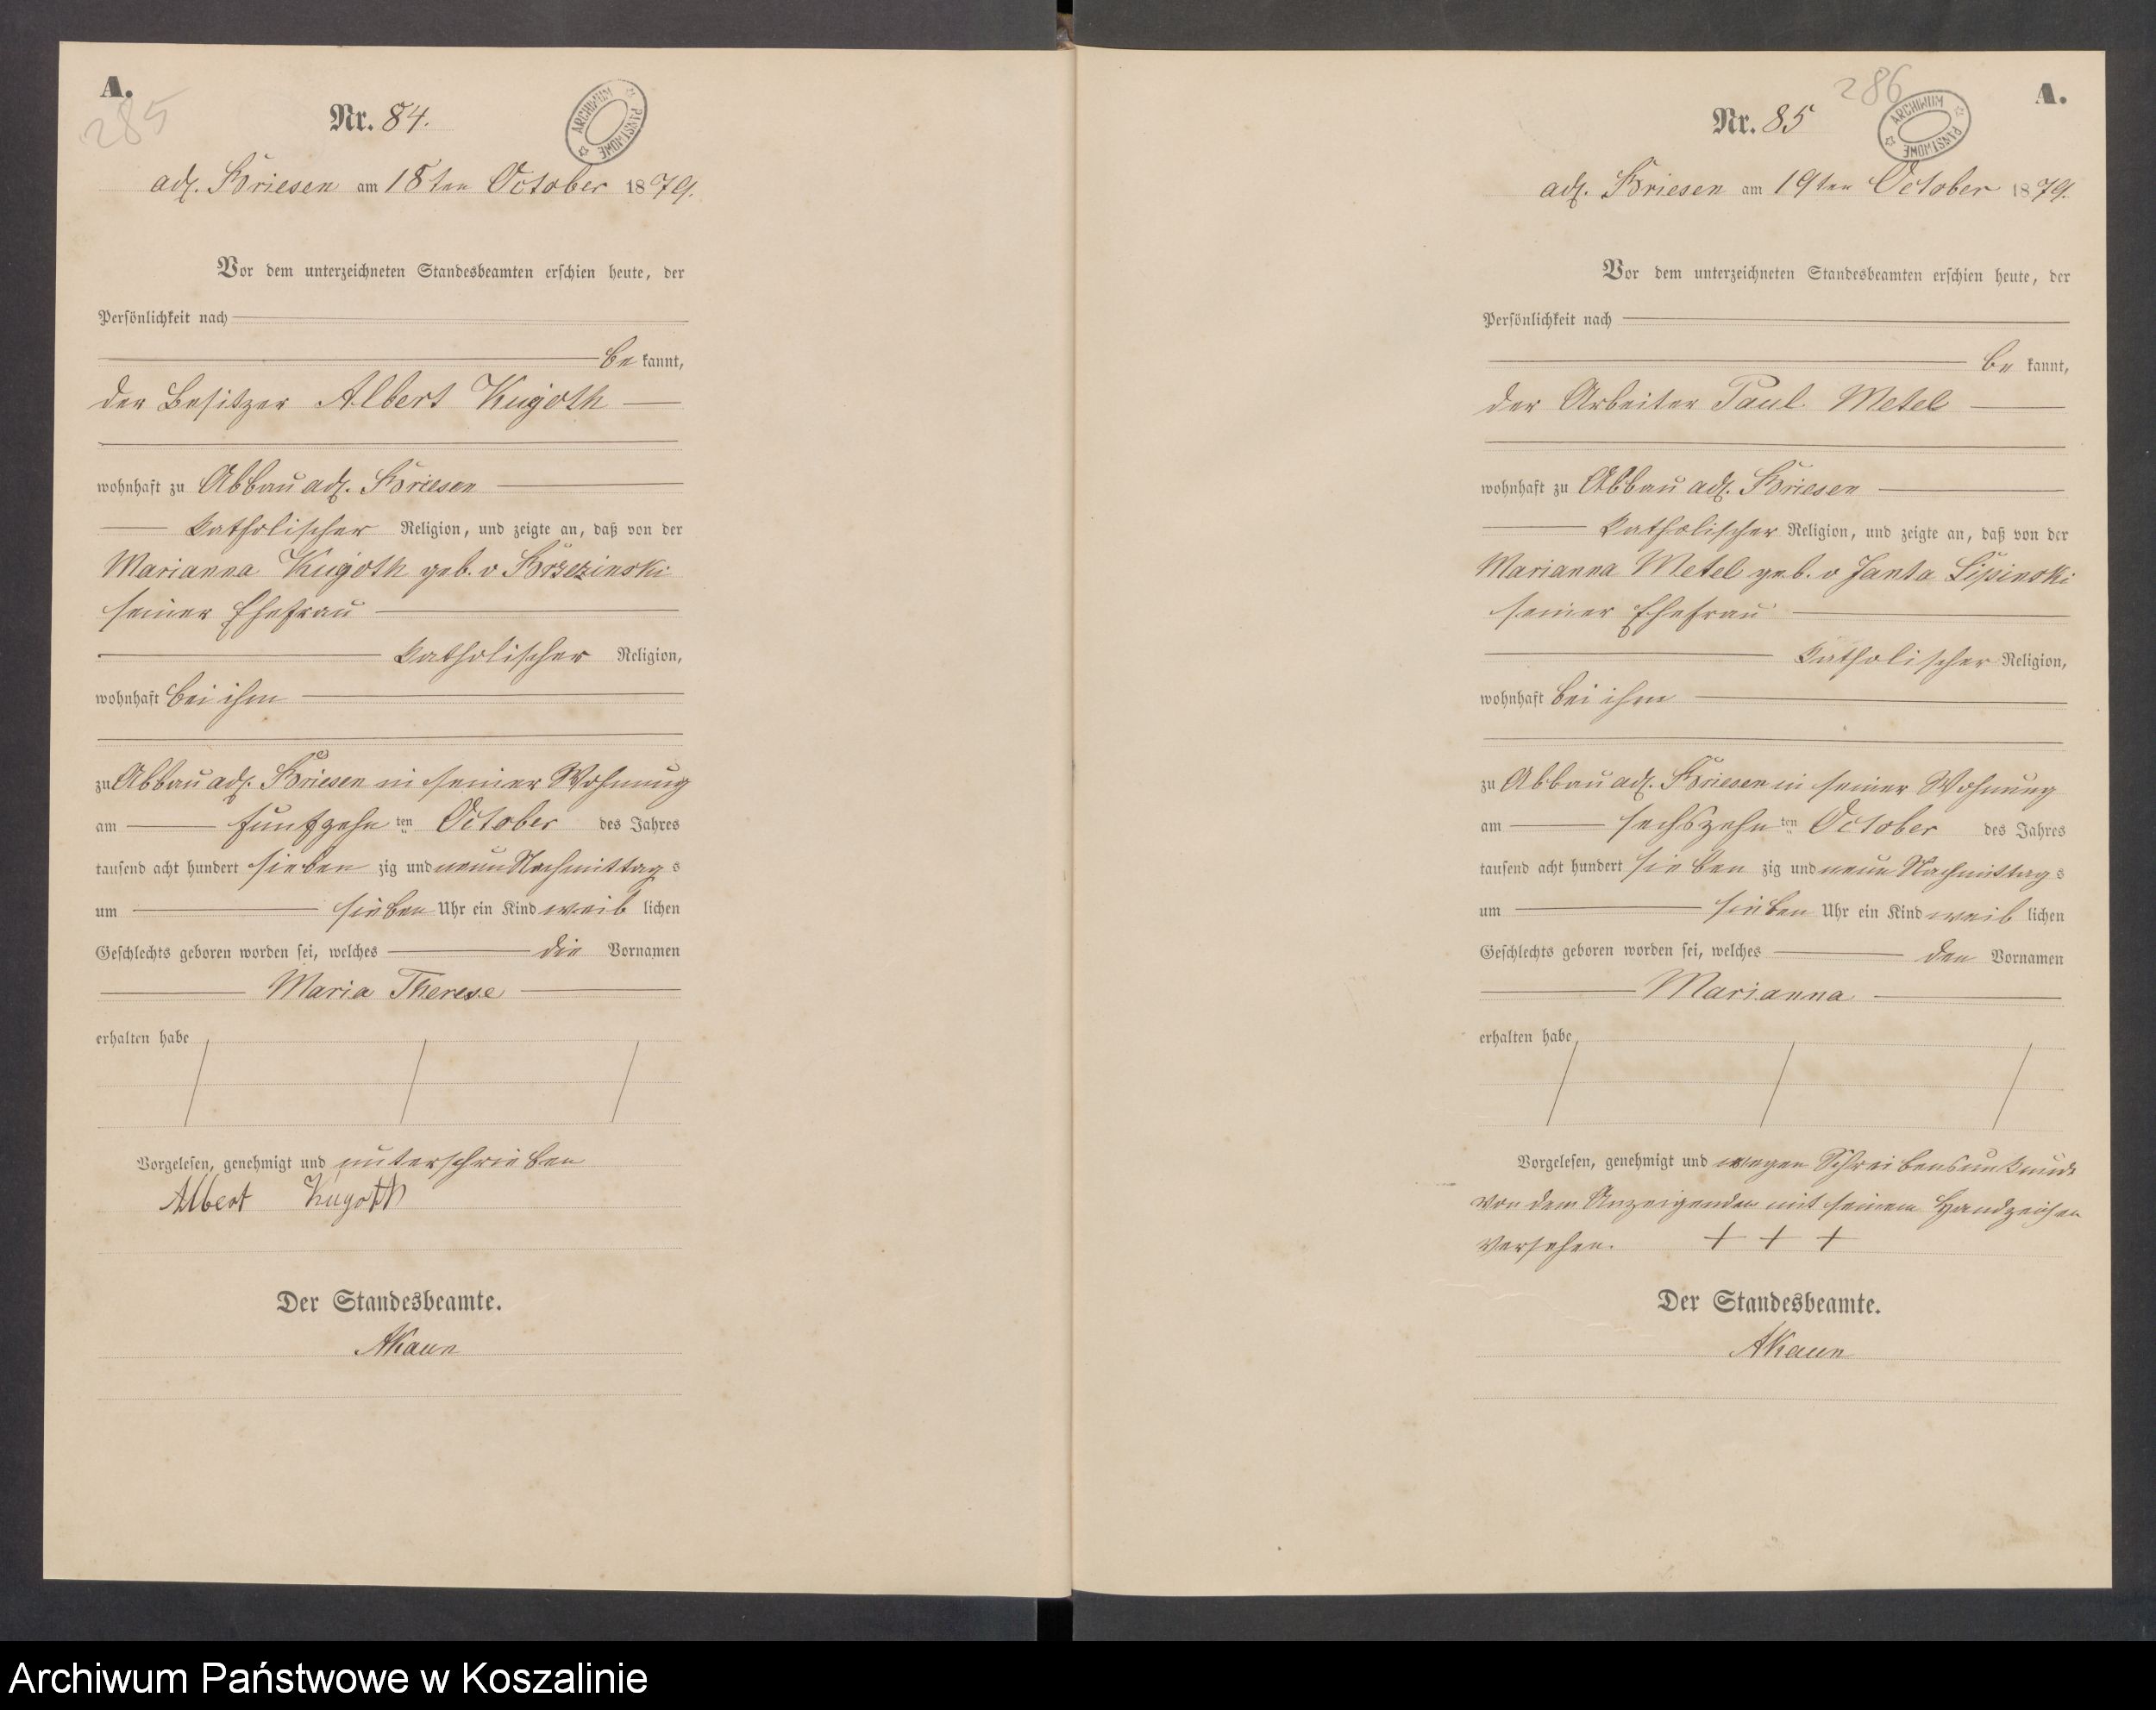 A.
285
Nr. 84.
ARCHIWUM PAŃSTWOWE
adl. Briesen am 18ten October 1879.
Vor dem unterzeichneten Standesbeamten erschien heute, der
Persönlichkeit nach
be kannt,
der Besitzer Albert Kugoth
wohnhaft zu Abbau adl. Briesen
katholischer Religion, und zeigte an, daß von der
Marianna Kugoth geb. v Brzezinski
seiner Ehefrau
katholischer Religion,
wohnhaft bei ihm
zu Abbau adl. Briesen in seiner Wohnung
am fünfzehn ten October des Jahres
tausend acht hundert sieben zig und neun Nachmittag s
um sieben Uhr ein Kind weib lichen
Geschlechts geboren worden sei, welches die Vornamen
Maria Therese
erhalten habe
Vorgelesen, genehmigt und unterschrieben
Albert Kugoth
Der Standesbeamte.
AKaun
286
A.
Nr. 85
ARCHIWUM PAŃSTWOWE
adl. Briesen am 19ten October 1879.
Vor dem unterzeichneten Standesbeamten erschien heute, der
Persönlichkeit nach
be kannt,
der Arbeiter Paul Metel
wohnhaft zu Abbau adl. Briesen
katholischer Religion, und zeigte an, daß von der
Marianna Metel geb. v Janta Lipinski
seiner Ehefrau
katholischer Religion,
wohnhaft bei ihm
zu Abbau adl. Briesen in seiner Wohnung
am sechszehn ten October des Jahres
tausend acht hundert sieben zig und neun Nachmittag s
um sieben Uhr ein Kind weib lichen
Geschlechts geboren worden sei, welches den Vornamen
Marianna
erhalten habe
Vorgelesen, genehmigt und wegen Schreibensunkunde
von dem Anzeigenden mit seinem Handzeichen
versehen. + + +
Der Standesbeamte.
AKaun
Archiwum Państwowe w Koszalinie